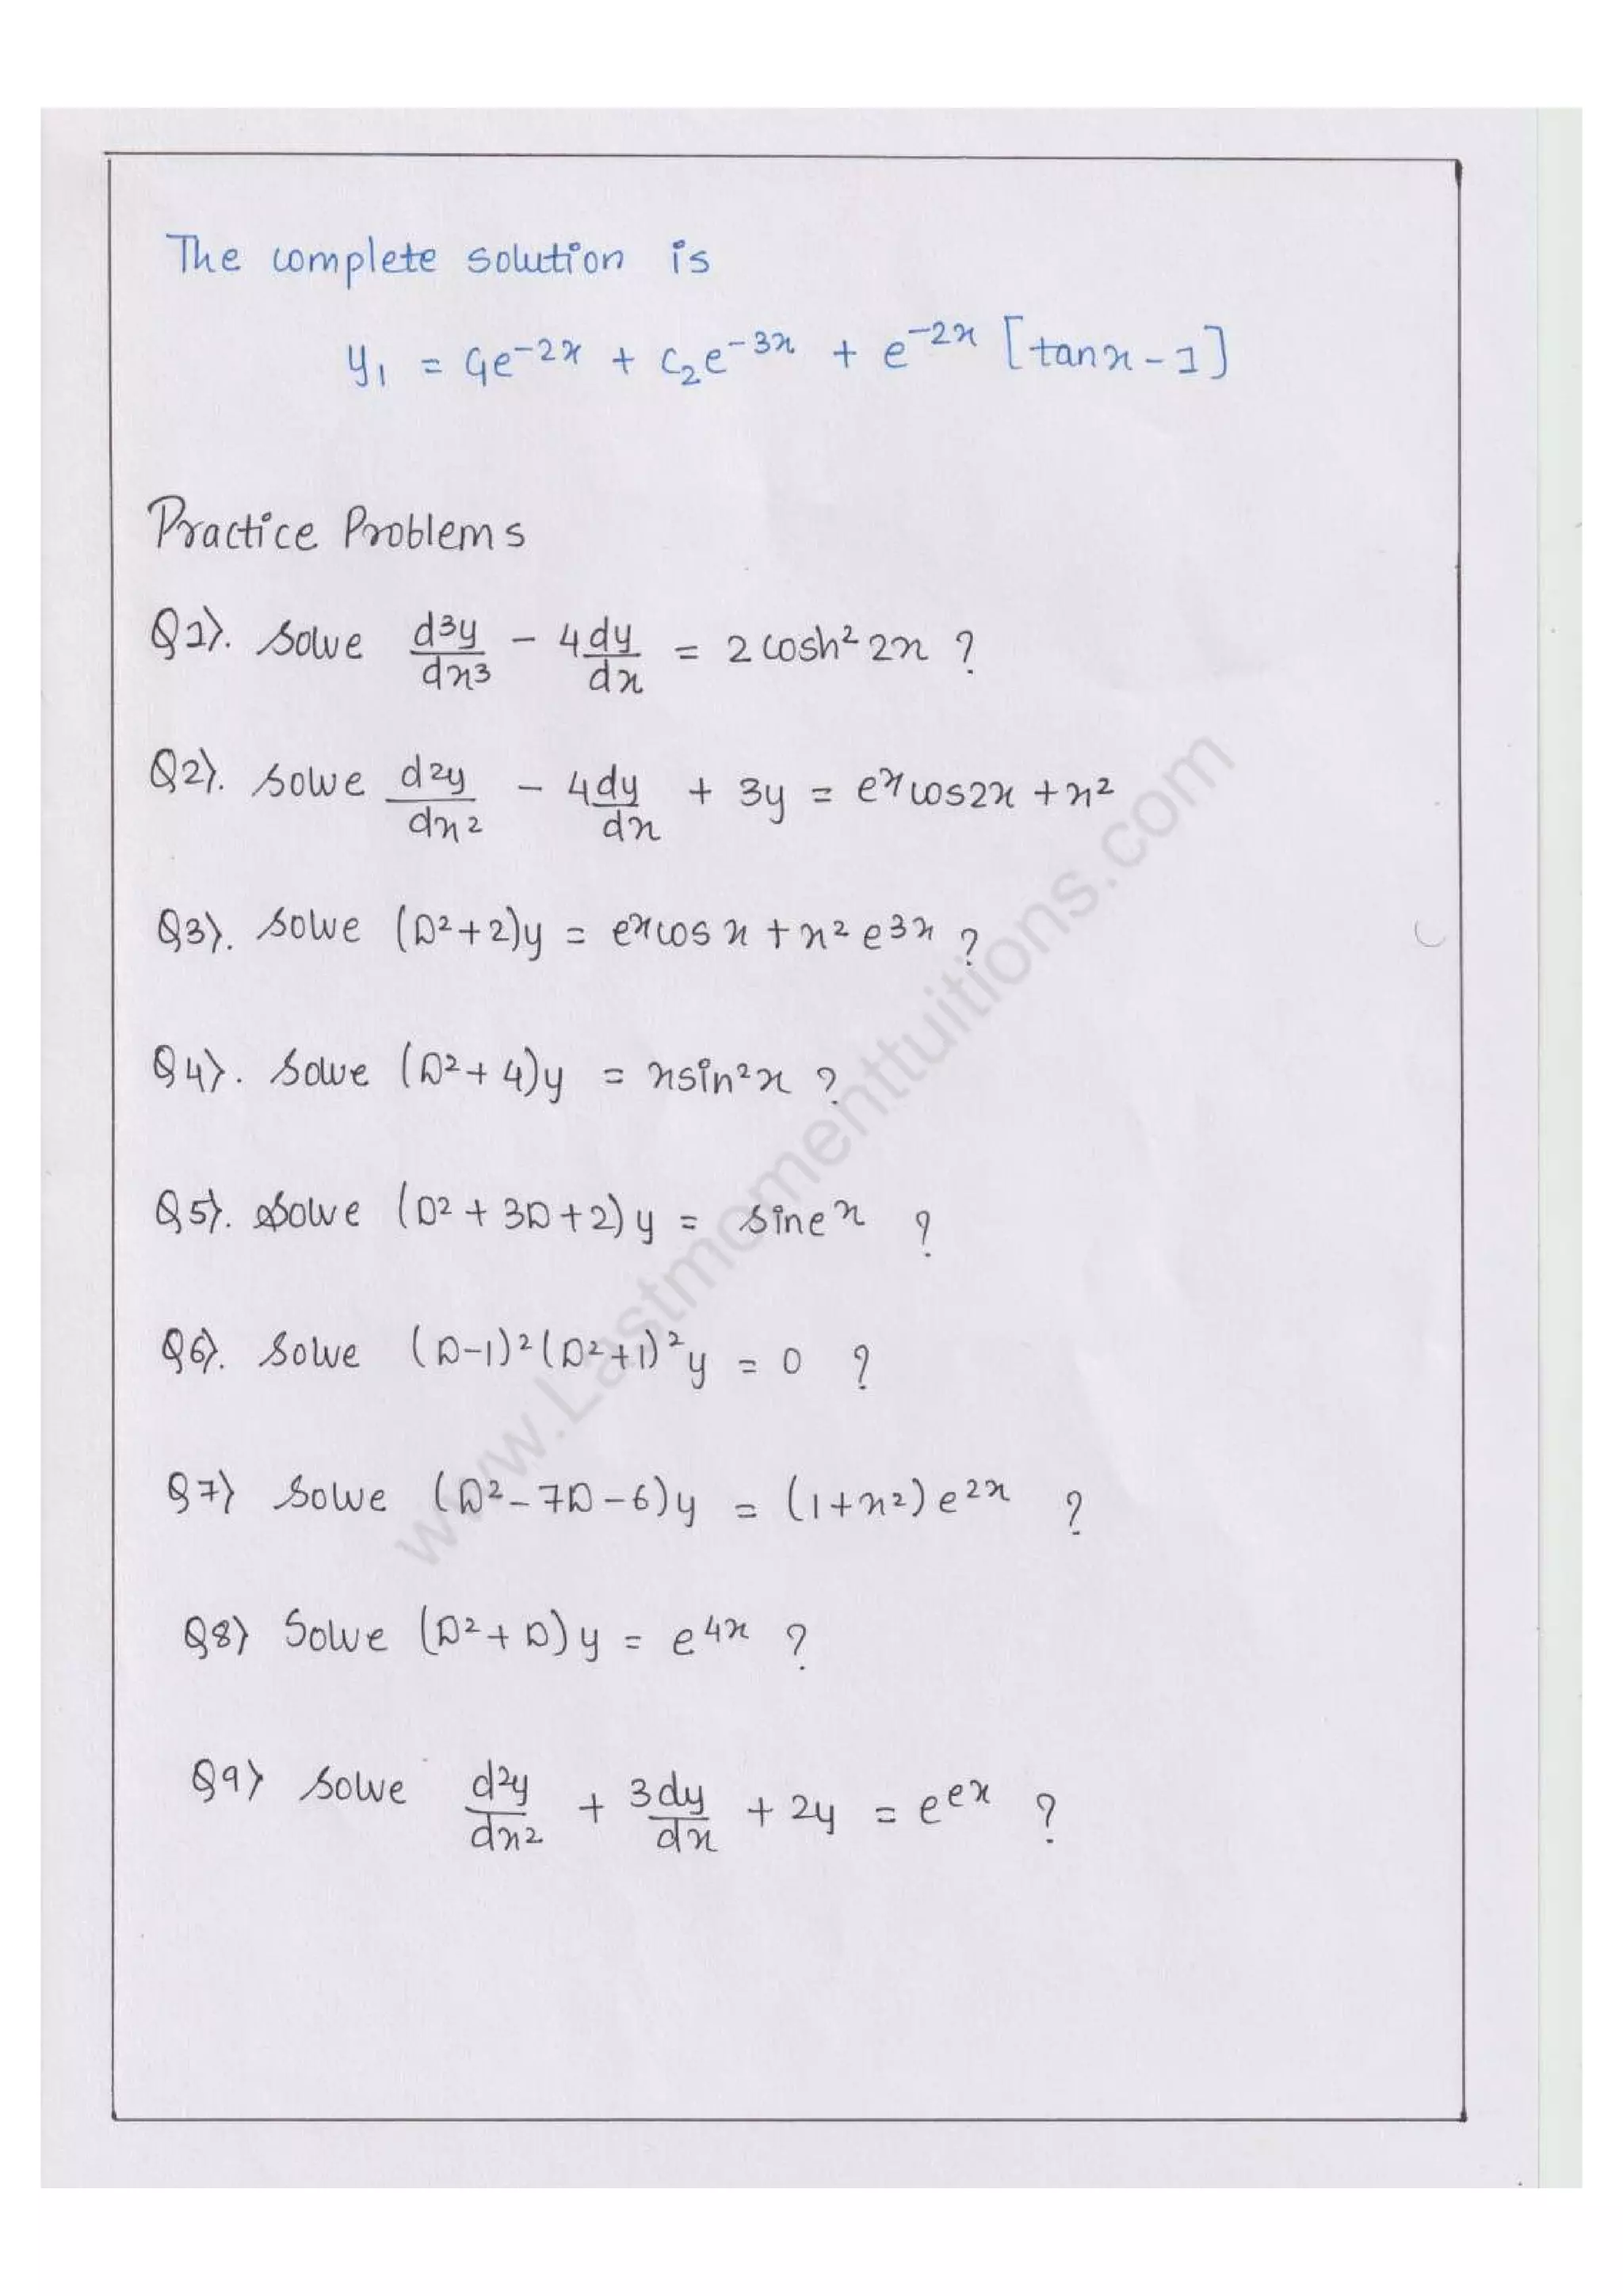 The complete solution is
y₁ = C₁e⁻²ˣ + C₂e⁻³ˣ + e⁻²ˣ [tanx - 1]
Practice Problems
Q1). Solve d³y/dx³ - 4dy/dx = 2 cosh² 2x ?
Q2). Solve d²y/dx² - 4dy/dx + 3y = eˣ cos2x + x²
Q3). Solve (D²+2)y = eˣ cos x + x² e³ˣ ?
Q4). Solve (D²+ 4)y = xsin²x ?
Q5). Solve (D² + 3D + 2) y = sin eˣ ?
Q6). Solve (D-1)² (D²+1)² y = 0 ?
Q7) Solve (D² - 7D - 6)y = (1+x²) e²ˣ ?
Q8) Solve (D² + D) y = e⁴ˣ ?
Q9) Solve d²y/dx² + 3dy/dx + 2y = e^eˣ ?
www.Lastmomenttuitions.com